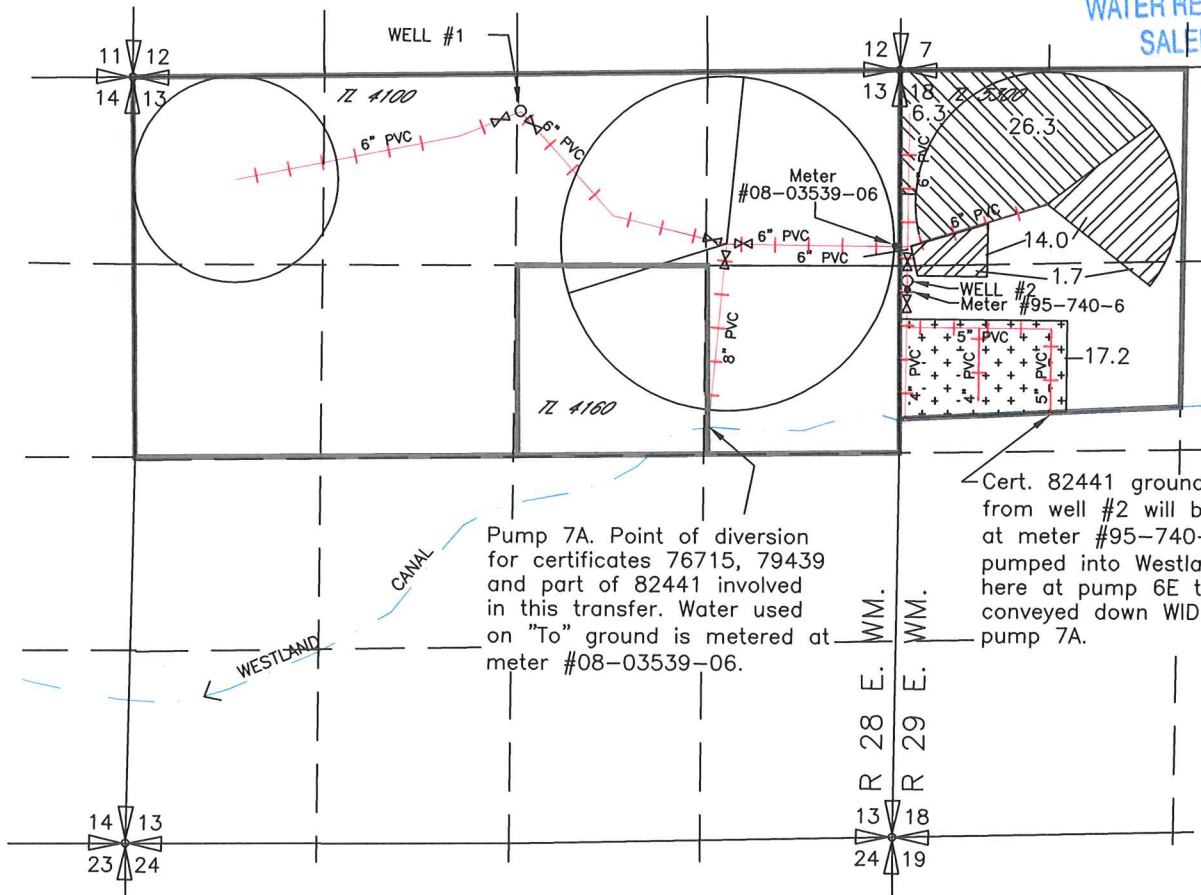 WATER RE
SALE
WELL #1
11 12
14 13
12 7
13 18
TL 4100
TL 5300
6.3
26.3
6" PVC
6" PVC
6" PVC
Meter
#08-03539-06
6" PVC
6" PVC
6" PVC
14.0
1.7
WELL #2
Meter #95-740-6
8" PVC
5" PVC
4" PVC
4" PVC
5" PVC
17.2
TL 4160
Pump 7A. Point of diversion
for certificates 76715, 79439
and part of 82441 involved
in this transfer. Water used
on "To" ground is metered at
meter #08-03539-06.
Cert. 82441 ground
from well #2 will b
at meter #95-740-
pumped into Westla
here at pump 6E t
conveyed down WID
pump 7A.
CANAL
WESTLAND
R 28 E. WM.
R 29 E. WM.
14 13
23 24
13 18
24 19